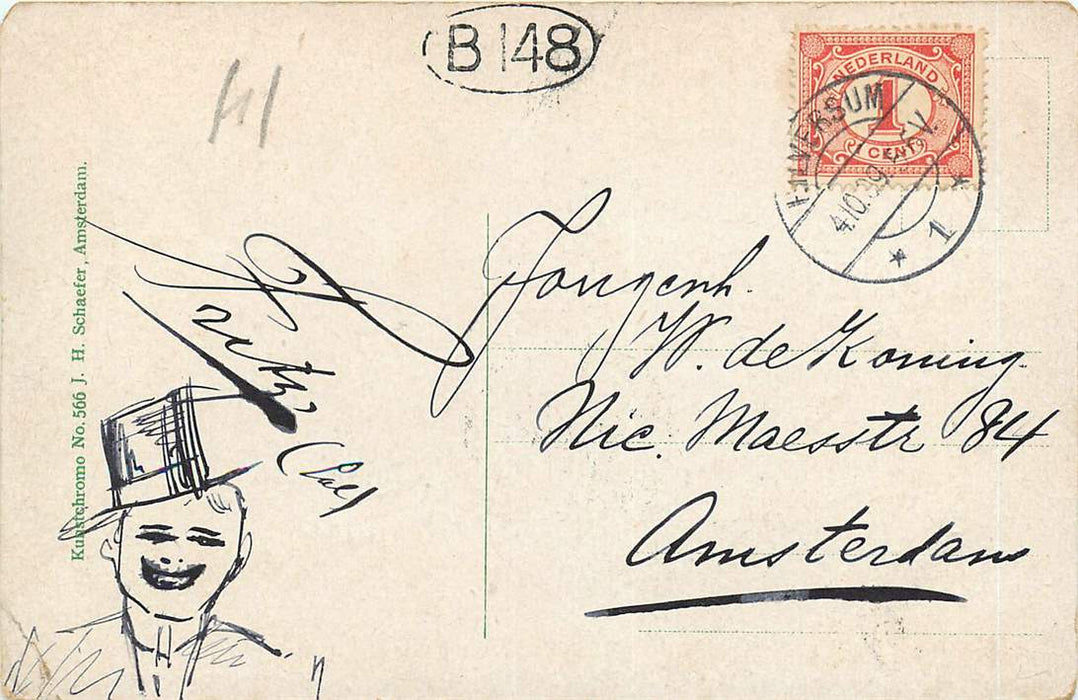 B 148
NEDERLAND
1
CENT
HILVERSUM
1
Kunstchromo No. 566 J. H. Schaefer, Amsterdam.
Frits
Jongenh.
W. de Koning
Nic. Maesstr 84
Amsterdam